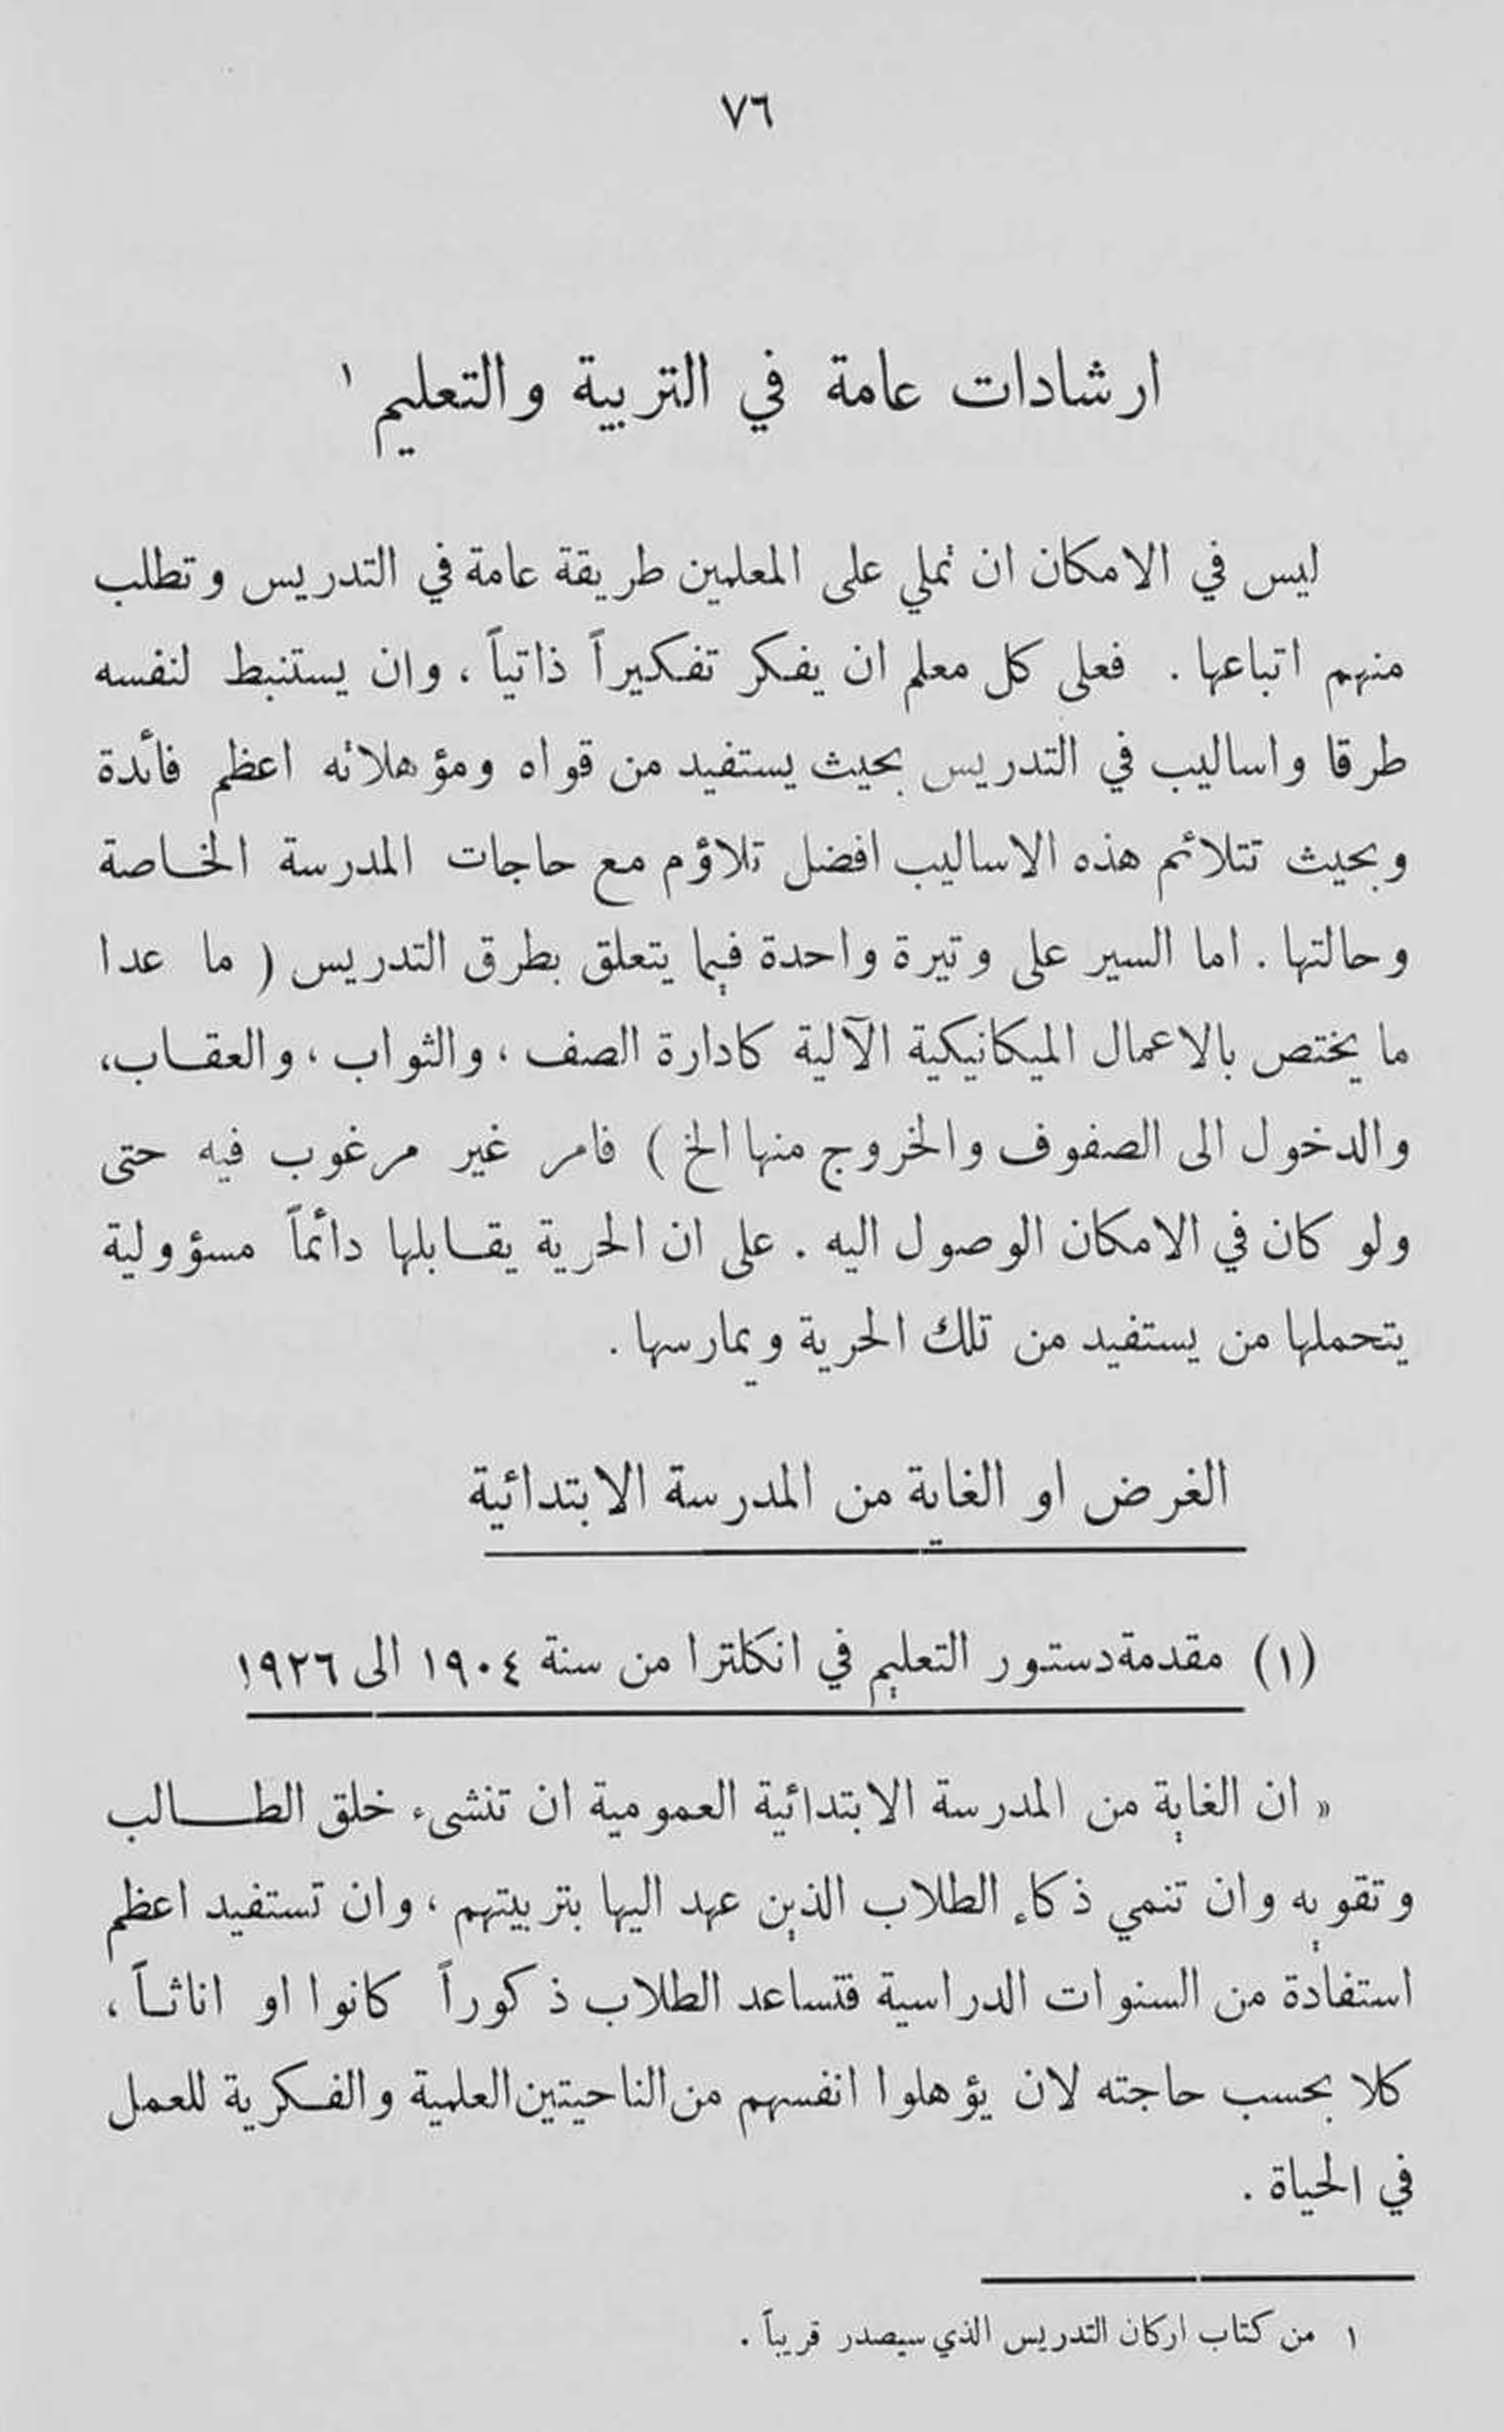 ٧٦
ارشادات عامة في التربية والتعليم ١
ليس في الامكان ان نملي على المعلمين طريقة عامة في التدريس وتطلب
منهم اتباعها . فعلى كل معلم ان يفكر تفكيراً ذاتياً ، وان يستنبط لنفسه
طرقا واساليب في التدريس بحيث يستفيد من قواه ومؤهلاته اعظم فائدة
وبحيث تتلائم هذه الاساليب افضل تلاؤم مع حاجات المدرسة الخاصة
وحالتها . اما السير على وتيرة واحدة فيما يتعلق بطرق التدريس ( ما عدا
ما يختص بالاعمال الميكانيكية الآلية كادارة الصف ، والثواب ، والعقاب،
والدخول الى الصفوف والخروج منها الخ ) فامر غير مرغوب فيه حتى
ولو كان في الامكان الوصول اليه . على ان الحرية يقابلها دائماً مسؤولية
يتحملها من يستفيد من تلك الحرية ويمارسها .
الغرض او الغاية من المدرسة الابتدائية
(١) مقدمة دستور التعليم في انكلترا من سنة ١٩٠٤ الى ١٩٢٦
« ان الغاية من المدرسة الابتدائية العمومية ان تنشىء خلق الطالب
وتقويه وان تنمي ذكاء الطلاب الذين عهد اليها بتربيتهم ، وان تستفيد اعظم
استفادة من السنوات الدراسية فتساعد الطلاب ذكوراً كانوا او اناثاً ،
كلا بحسب حاجته لان يؤهلوا انفسهم من الناحيتين العلمية والفكرية للعمل
في الحياة .
١ من كتاب اركان التدريس الذي سيصدر قريباً .